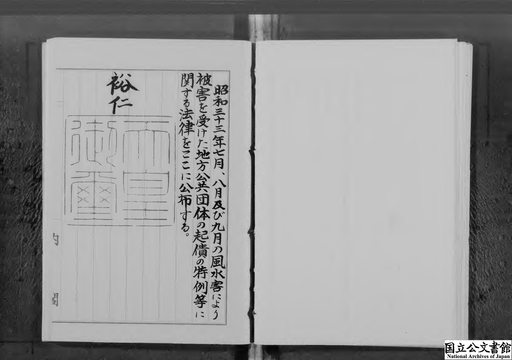 昭和三十三年七月、八月及び九月の風水害により
被害を受けた地方公共団体の起債の特例等に
関する法律をここに公布する。
裕仁
天皇
御璽
国立公文書館
National Archives of Japan